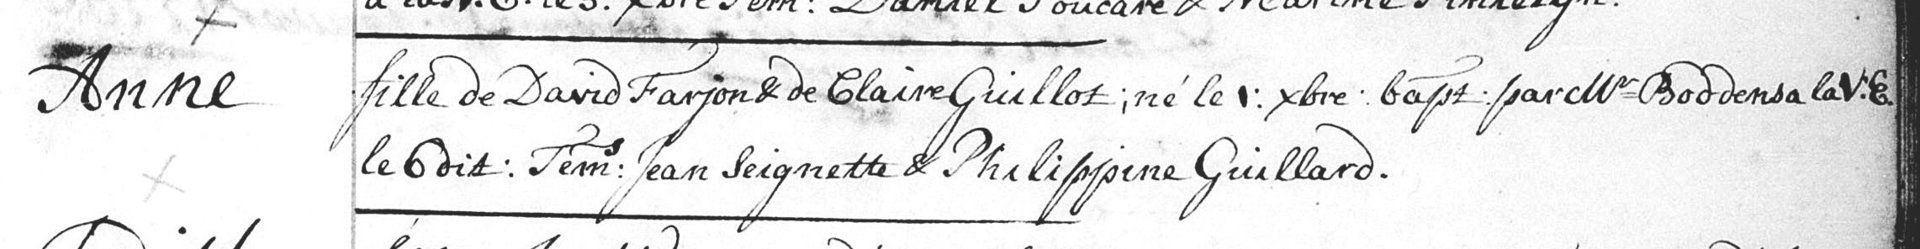 Daniel Poucare &
Anne
fille de David Farjon & de Claire Guillot; né le 1: xbre: bapt. par Mr Boddens a la V.E.
le 6 dit: Tems: Jean Seignette & Philippine Guillard.